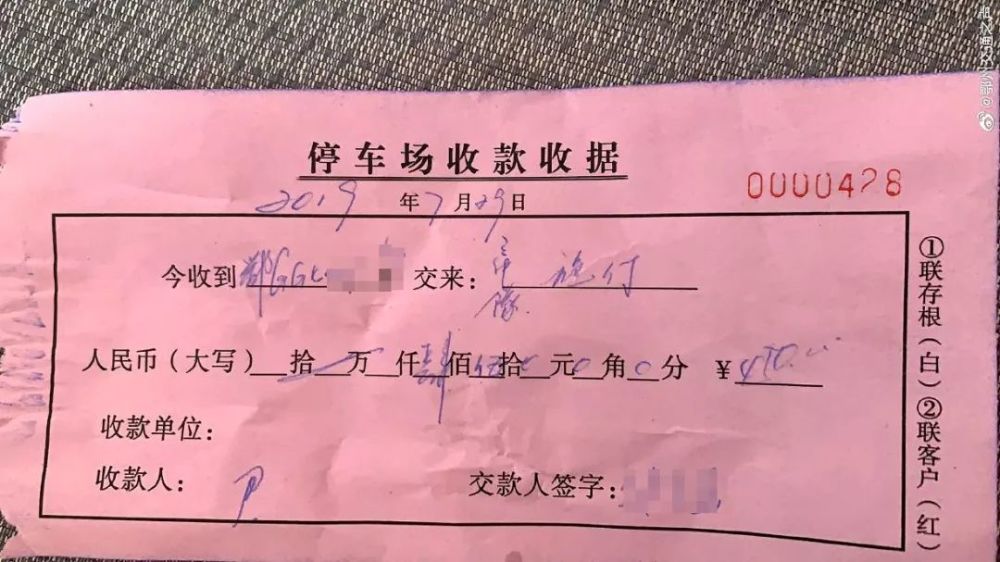 停车场收款收据
0000428
2019年7月29日
今收到鄂GGL 交来：
人民币（大写） 拾 万 仟肆佰伍拾 元0角0分 ¥450.
收款单位：
收款人：
交款人签字：
①联存根（白）②联客户（红）